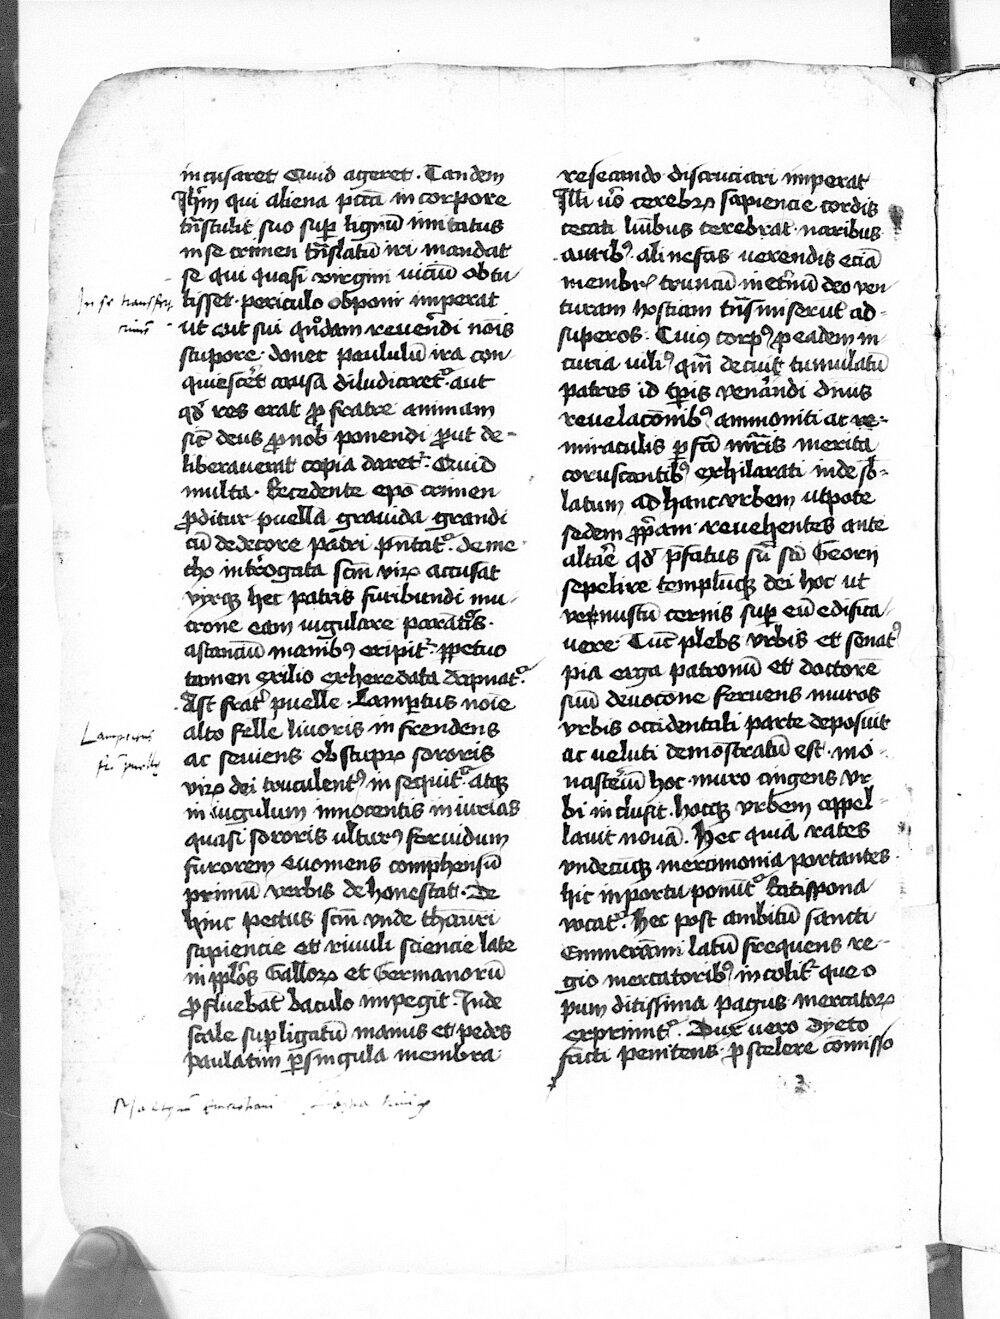 incusaret Quid ageret. Tandem
Ihm̄ qui aliena pctā in corpore
trāstulit suo sup̱ lignū imitatus
in se crimen trāslatū iri mandat
se qui quasi virgini viciū obtu
lisset. periculo obponi imperat
ut cut sui quodam reuerendi nois
stupore. donec paululū ira con
quiescet causa diiudicaret. aut
qd res erat ꝓ fratre animam
sic deus ꝓ nob ponendi ꝓut de-
liberauerat copia daret. Quid
multa. Recedente epō crimen
ꝓditur puella grauida grandi
cū dedecore patri pntat. de me
cho introgata scm virꝝ accusat
virqꝫ hec patris furibundi mu
crone eam iugulare paratis.
astanciū manibꝰ eripit. ꝑpetuo
tamen exilio exheredata dampnat.
Ast frat puelle. Lamptus noie
alto felle liuoris infrendens
ac seuiens obstupꝝ sororis
virꝝ dei truculentꝰ insequit. atqꝫ
in iugulum innocentis iniurias
quasi sororis ulturꝰ feruidum
furorem euomens comphensū
primū verbis dehonestat. De
hinc pectus scm vnde thauri
sapiencie et riuuli sciencie late
in pplos Gallorꝝ et Germanorū
ꝓfluebāt baculo impegit. Inde
scale supligatū manus et pedes
paulatim ꝑ singula membra
In se transfer
crimē
Lampertus
fr̄ puelle
resecando discruciari imperat
Illi vo cerebrꝝ sapiencie cordis
cecati luibus terebrat. naribus
auribꝰ. alinescis verendis eciā
membrꝭ truncū in etnū deo ven
turam hostiam trāsmiserūt ad-
superos. Cuiꝰ corpꝰ ꝑ eadem in
curia viliꝰ qm̄ decuit tumulatū
patres id tꝑis venandi diuis
reuelaconibꝰ ammoniti ac re-
miraculis ꝑ scā mris merita
coruscantibꝰ exhilarati inde sb-
latum ad hanc vrbem utpote
sedem ꝓpam reuehentes ante
altare qd pfatus sū scī Georij
sepelire templūqꝫ dei hoc ut
venustū cernis sup eū edifica
uere Cūc plebs vrbis et senatꝰ
pia erga patronū et doctorē
suū deuocone feruens muros
vrbis occidentali parte deposuit
ac veluti demostratū est. mo-
nasteriū hoc muro cingens vr
bi inclusit. hocqꝫ vrbem appel-
lauit nouā. Hec quia rates
vndecūqꝫ mercimonia portantes
hic in portu ponūt Ratispona
vocat. Hec post ambitū sancti
Emmerāmi latū frequens re-
gio mercatoribꝰ incolit que o
pum ditissima pagus mercatorꝝ
exprimit. Dux vero Dyeto
facti penitens. ꝓ scelere comisso